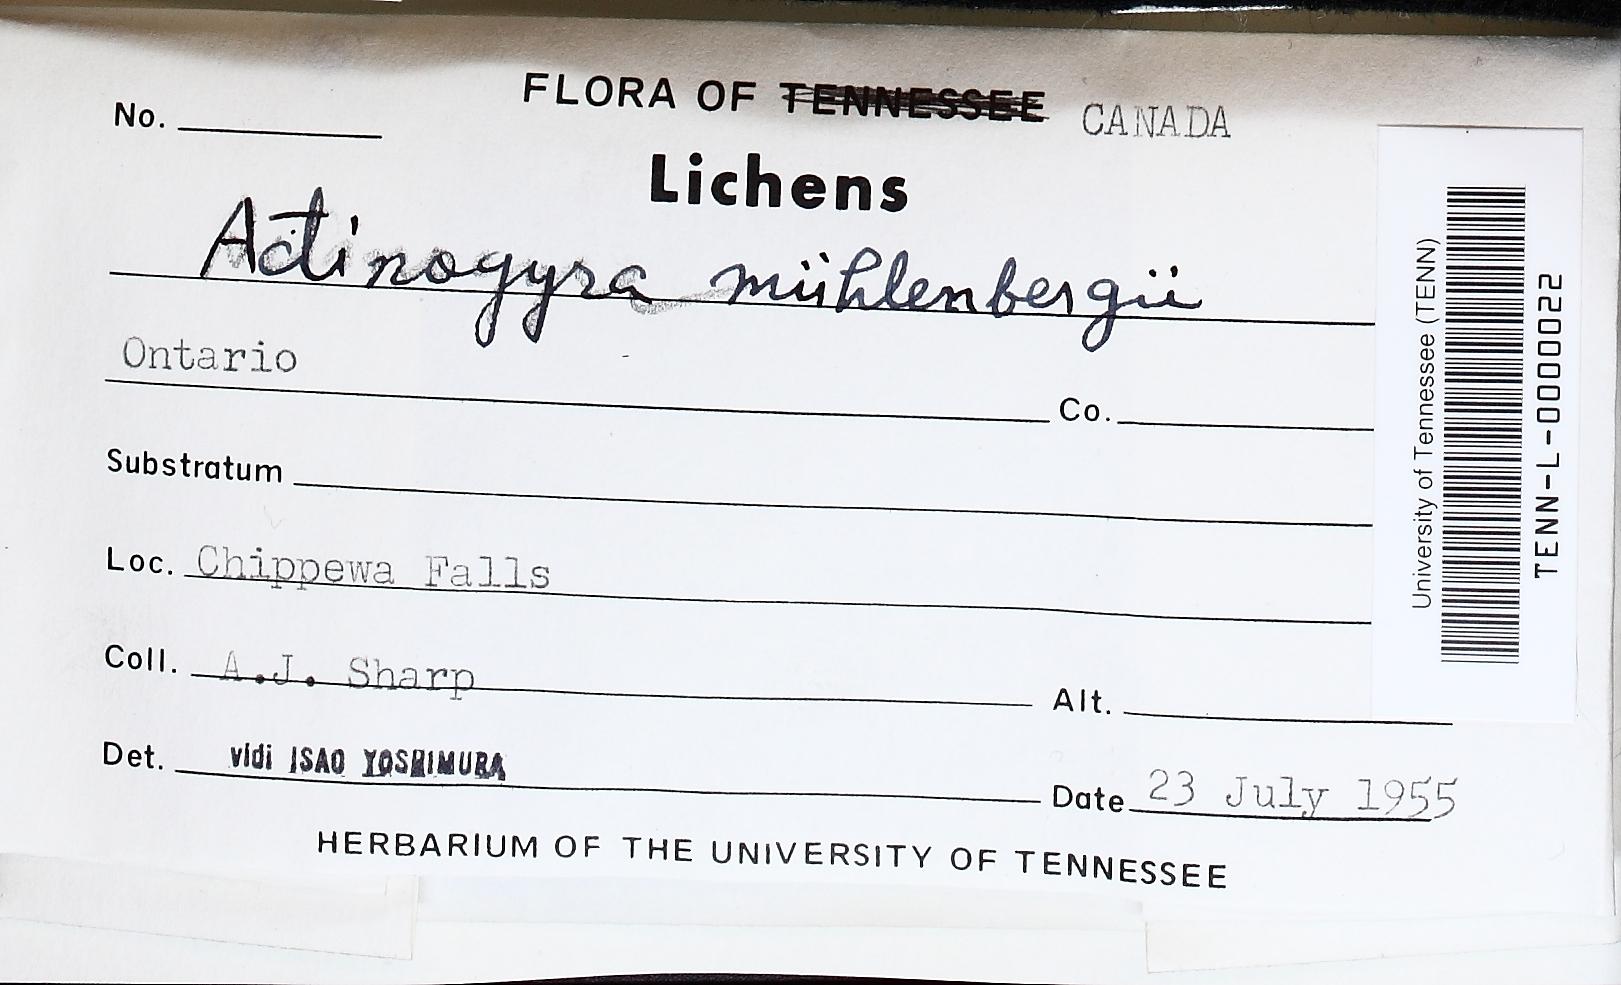 FLORA OF TENNESSEE CANADA
No.
Lichens
Actinogyra mühlenbergii
Ontario Co.
Substratum
Loc. Chippewa Falls
Coll. A.J. Sharp Alt.
Det. vidi ISAO YOSHIMURA Date 23 July 1955
HERBARIUM OF THE UNIVERSITY OF TENNESSEE
University of Tennessee (TENN)
TENN-L-0000022